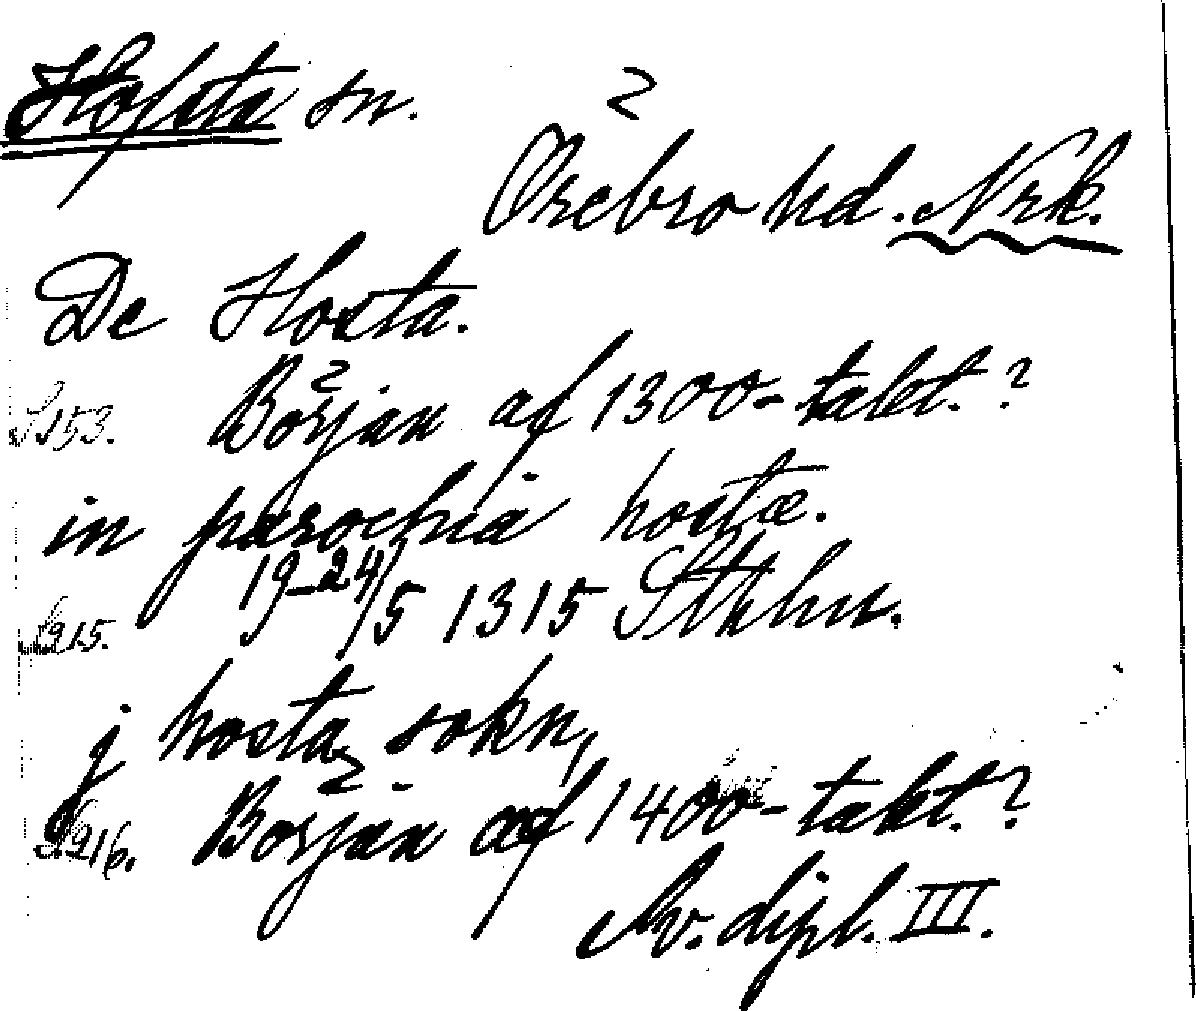 Hofsta sn.
Örebro hd. Nrk.
De Hosta.
S. 153. Början af 1300-talet.?
in parochia hosta.
S. 215. 19-24/5 1315 Stkhm.
j hosta sokn,
S. 216. Början af 1400-talet.?
Sv. dipl. III.